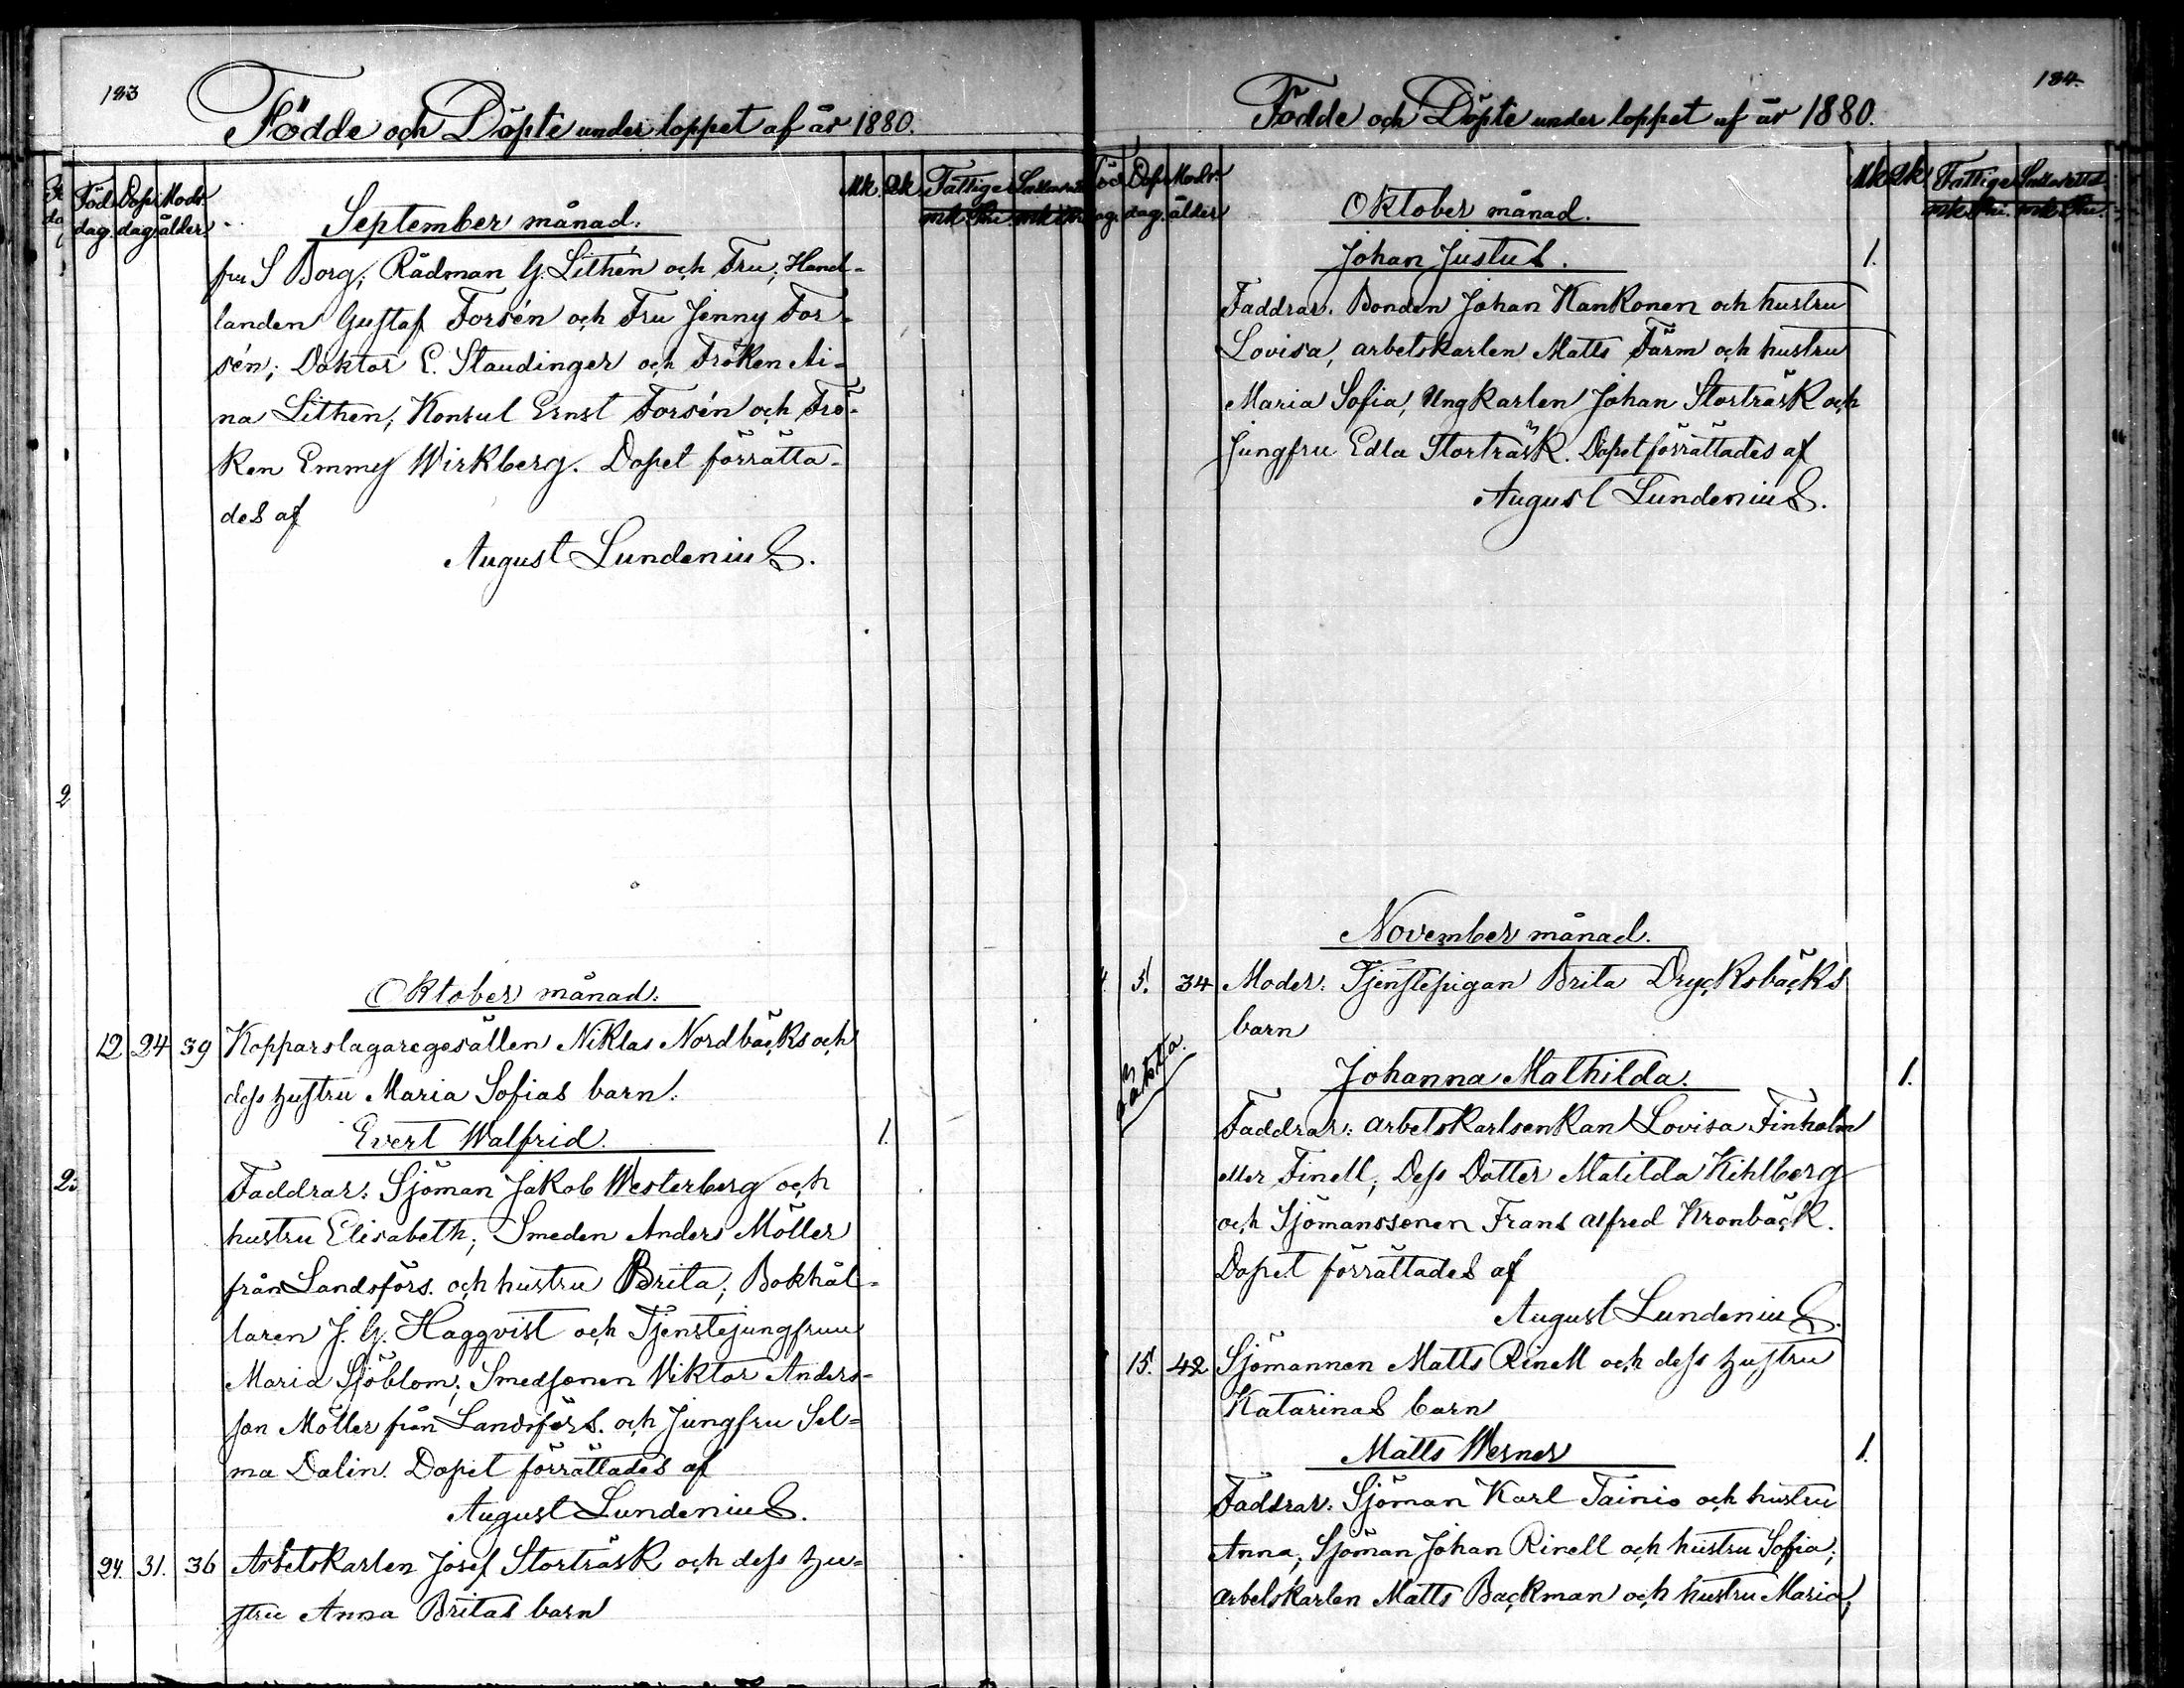 183
Födde och Döpte under loppet af år 1880.
Föd. Döp. Mod:s Mk. Qk. Fattige
dag. dag. ålder.
September månad.
fru S Borg; Rådman G. Lithén och Fru; Hand-
landen Gustaf Forsén och Fru Jenny For-
sén; Doktor E. Staudinger och Fröken Ai-
na Lithen; Konsul Ernst Forsén och Frö-
ken Emmy Wirkberg. Dopet förrätta-
des af
August Lundenius.
Oktober månad.
12 24 39 Kopparslagaregesällen Niklas Nordbäcks och
dess hustru Maria Sofias barn.
Evert Walfrid. 1.
Faddrar: Sjöman Jakob Westerberg och
hustru Elisabeth; Smeden Anders Möller
från Landsförs. och hustru Brita; Bokhål-
laren J. G. Haggqvist och Tjenstejungfrun
Maria Sjöblom; Smedsonen Viktor Anders-
son Möller från Landsförs. och Jungfru Sel-
ma Dalin. Dopet förrättades af
August Lundenius.
24. 31. 36 Arbetskarlen Josef Storträsk och dess hu-
stru Anna Britas barn
184.
Födde och Döpte under loppet af år 1880.
Döp. Mod:s Mk Qk Fattige
dag. ålder
Oktober månad.
Johan Justus. 1.
Faddrar. Bonden Johan Kankonen och hustru
Lovisa, arbetskarlen Matts Färm och hustru
Maria Sofia, Ungkarlen Johan Storträsk och
Jungfru Edla Storträsk. Dopet förrättades af
August Lundenius.
November månad.
4 5. 34 Moder: Tjenstepigan Brita Drycksbäcks
barn
oäkta.
Johanna Mathilda. 1.
Faddrar: arbetskarlsenkan Lovisa Finholm
eller Finell; Dess Dotter Matilda Kihlberg
och Sjömanssonen Frans Alfred Kronbäck.
Dopet förrättades af
August Lundenius.
15. 42 Sjömannen Matts Rinell och dess hustru
Katarinas barn
Matts Werner 1.
Faddrar: Sjöman Karl Tainio och hustru
Anna; Sjöman Johan Rinell och hustru Sofia;
arbetskarlen Matts Backman och hustru Maria;